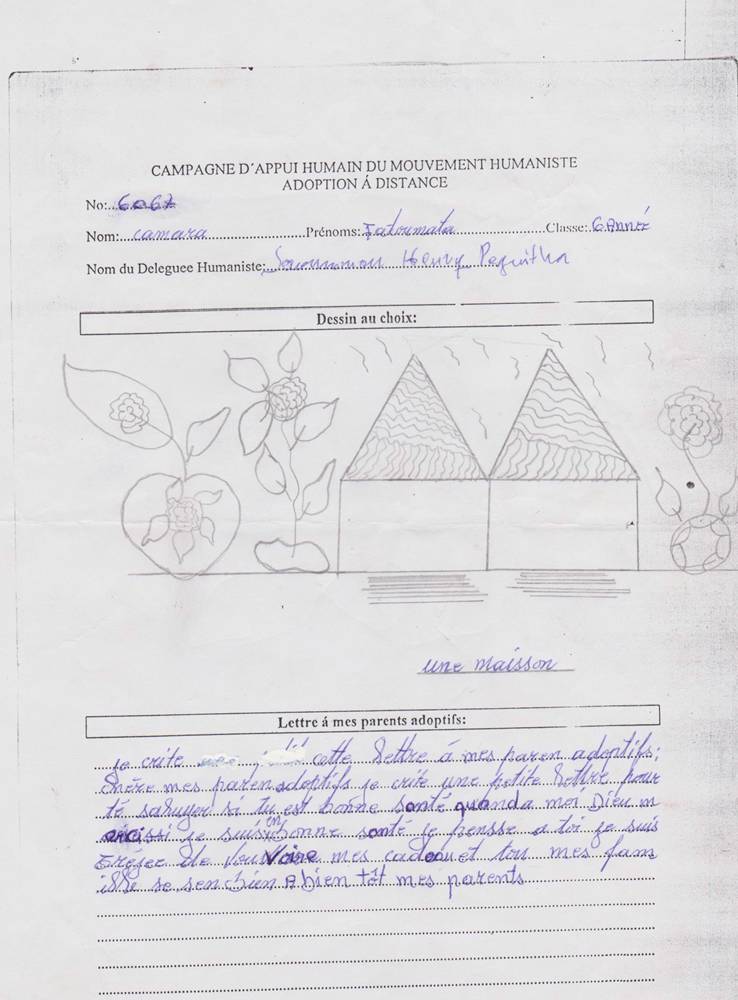 CAMPAGNE D´APPUI HUMAIN DU MOUVEMENT HUMANISTE
ADOPTION Á DISTANCE
No: 6067
Nom: camara Prénoms: Fatoumata Classe: 6 Année
Nom du Deleguee Humaniste: Henry
Dessin au choix:
une maisson
Lettre á mes parents adoptifs:
je crite cette lettre á mes paren adoptifs;
mes paren adoptifs je crite une petite lettre pour
té saluyer si tu est bonne santé quand a moi Dieu m
je suis en bonne santé je pensse a toi je suis
de vou mes cadou et tou mes fam
ille se sen bien A bien tôt mes parents